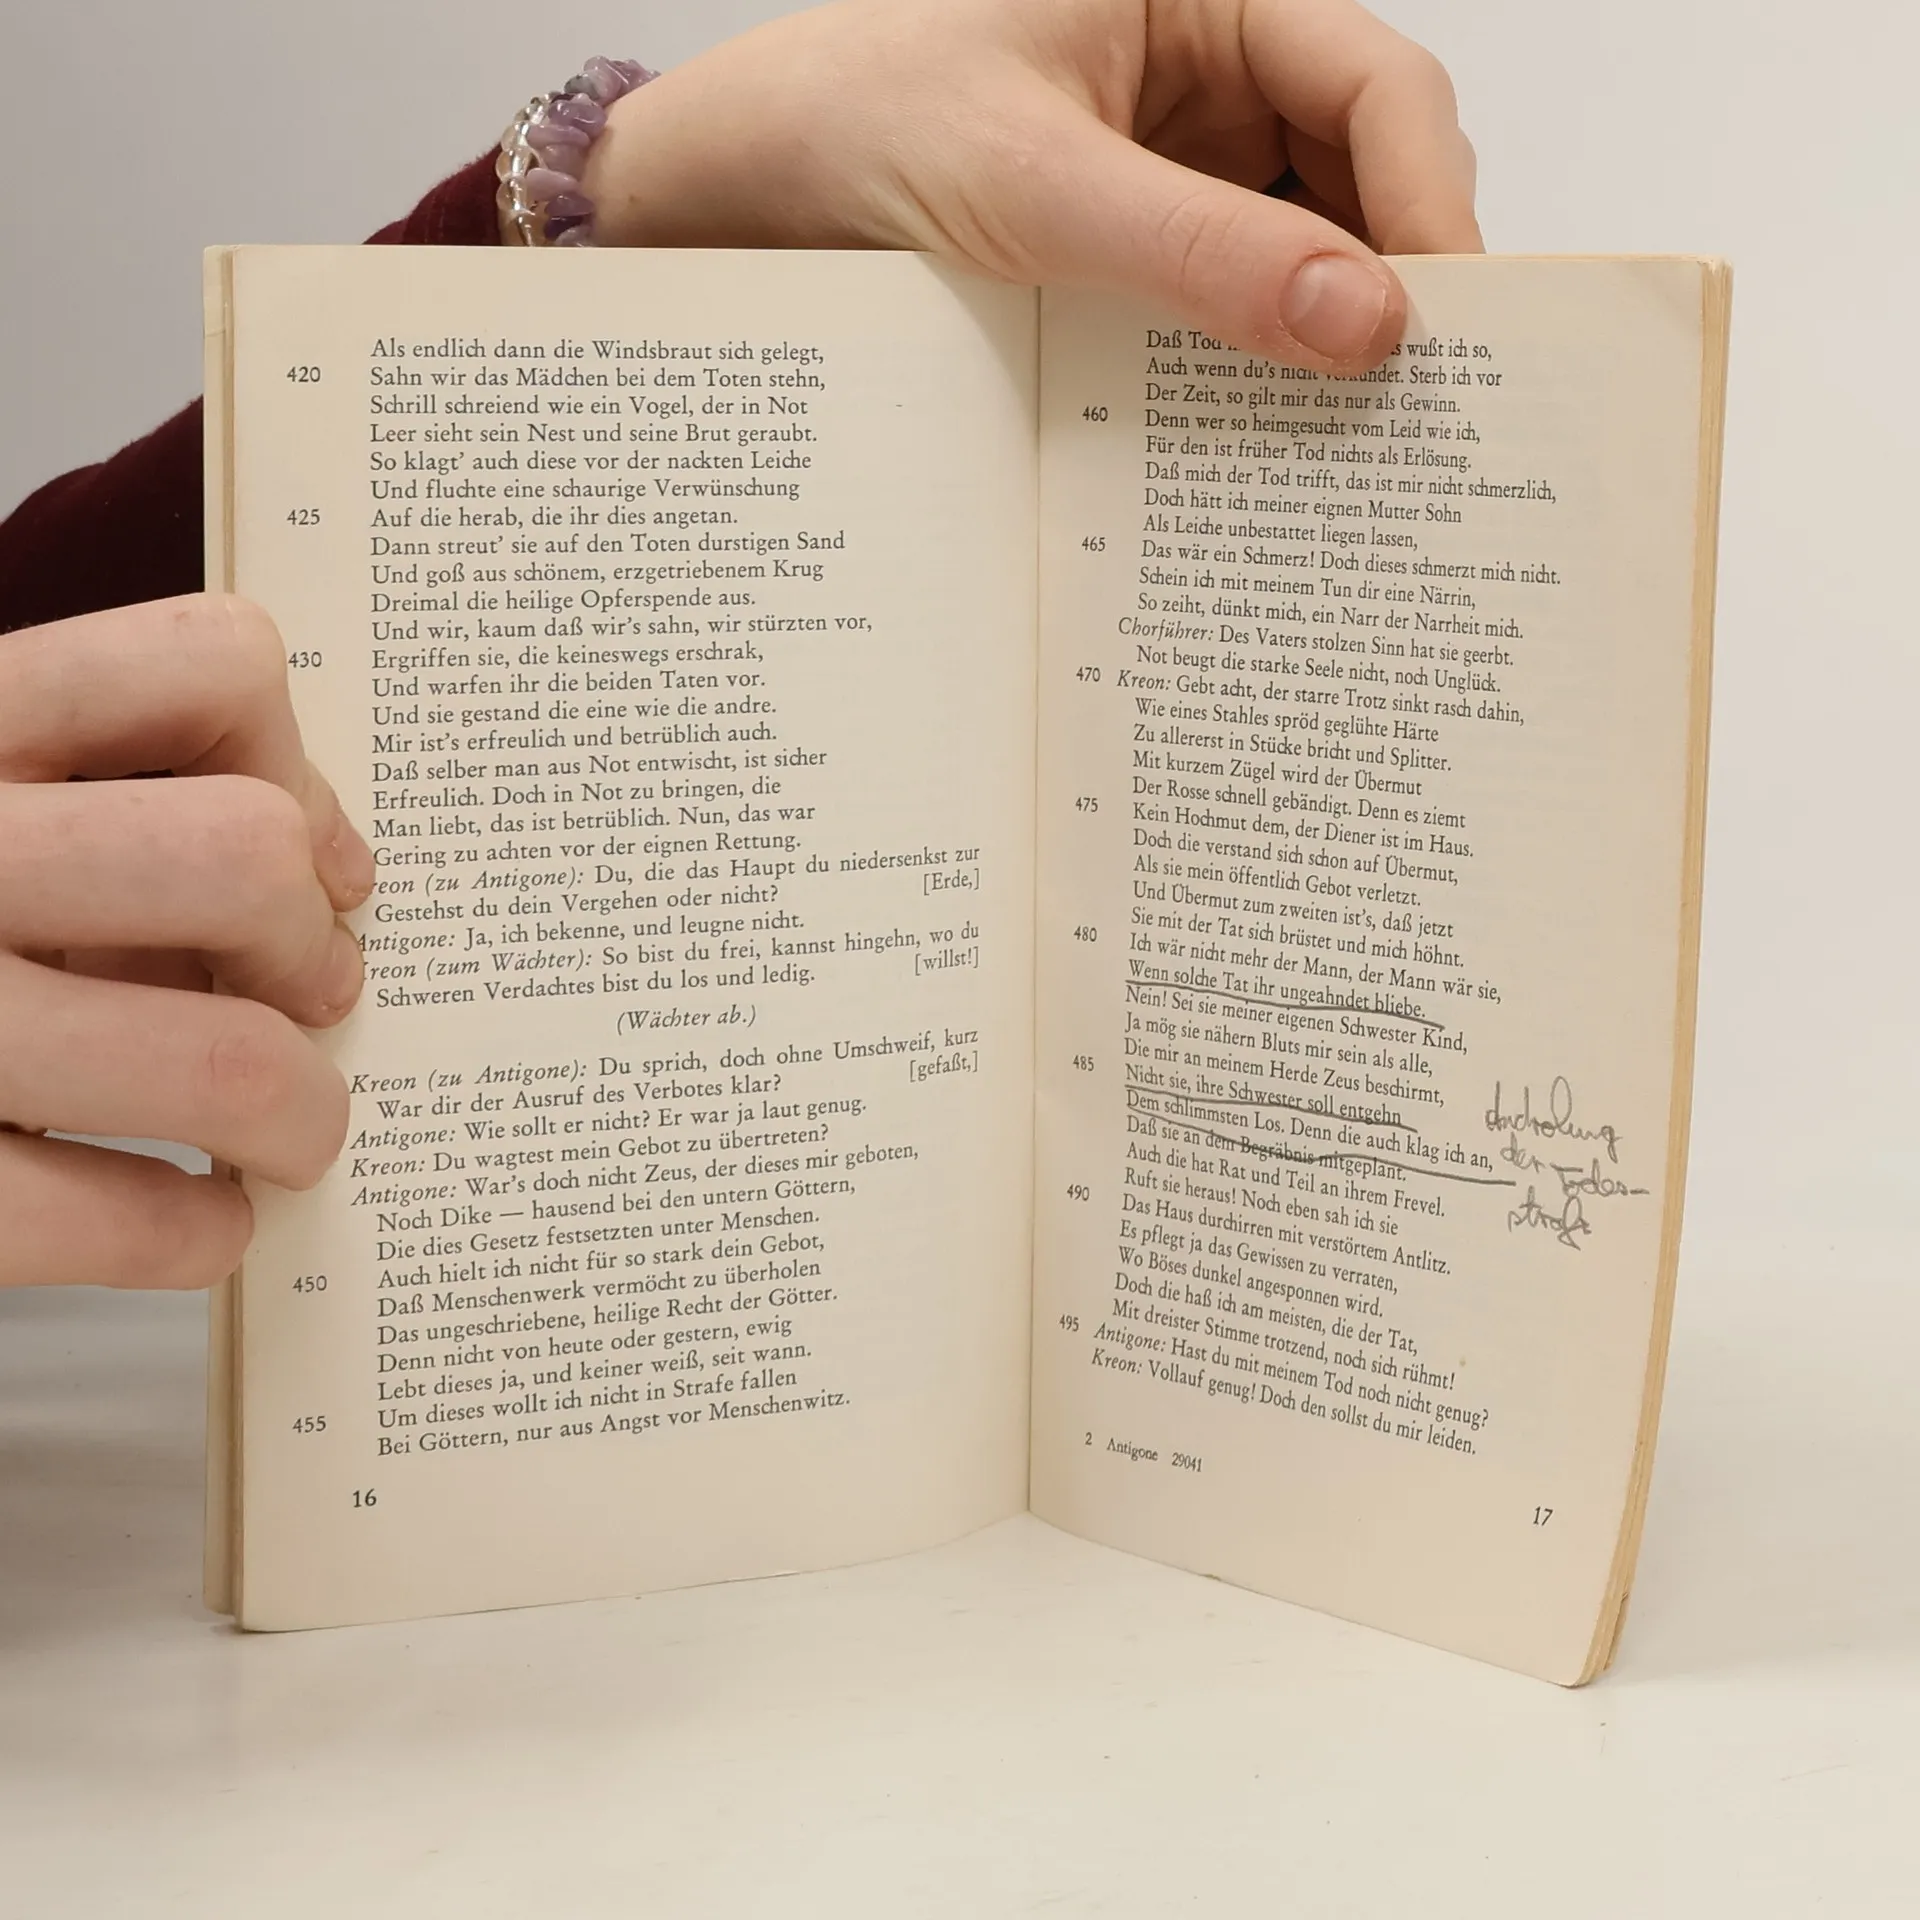 Als endlich dann die Windsbraut sich gelegt,
420 Sahn wir das Mädchen bei dem Toten stehn,
Schrill schreiend wie ein Vogel, der in Not
Leer sieht sein Nest und seine Brut geraubt.
So klagt’ auch diese vor der nackten Leiche
Und fluchte eine schaurige Verwünschung
425 Auf die herab, die ihr dies angetan.
Dann streut’ sie auf den Toten durstigen Sand
Und goß aus schönem, erzgetriebenem Krug
Dreimal die heilige Opferspende aus.
Und wir, kaum daß wir’s sahn, wir stürzten vor,
430 Ergriffen sie, die keineswegs erschrak,
Und warfen ihr die beiden Taten vor.
Und sie gestand die eine wie die andre.
Mir ist’s erfreulich und betrüblich auch.
Daß selber man aus Not entwischt, ist sicher
Erfreulich. Doch in Not zu bringen, die
Man liebt, das ist betrüblich. Nun, das war
Gering zu achten vor der eignen Rettung.
reon (zu Antigone): Du, die das Haupt du niedersenkst zur
[Erde,]
Gestehst du dein Vergehen oder nicht?
Antigone: Ja, ich bekenne, und leugne nicht.
reon (zum Wächter): So bist du frei, kannst hingehn, wo du
[willst!]
Schweren Verdachtes bist du los und ledig.
(Wächter ab.)
Kreon (zu Antigone): Du sprich, doch ohne Umschweif, kurz
[gefaßt,]
War dir der Ausruf des Verbotes klar?
Antigone: Wie sollt er nicht? Er war ja laut genug.
Kreon: Du wagtest mein Gebot zu übertreten?
Antigone: War’s doch nicht Zeus, der dieses mir geboten,
Noch Dike — hausend bei den untern Göttern,
Die dies Gesetz festsetzten unter Menschen.
450 Auch hielt ich nicht für so stark dein Gebot,
Daß Menschenwerk vermöcht zu überholen
Das ungeschriebene, heilige Recht der Götter.
Denn nicht von heute oder gestern, ewig
Lebt dieses ja, und keiner weiß, seit wann.
455 Um dieses wollt ich nicht in Strafe fallen
Bei Göttern, nur aus Angst vor Menschenwitz.
16
Daß Tod wußt ich so,
Auch wenn du’s nicht verkündet. Sterb ich vor
Der Zeit, so gilt mir das nur als Gewinn.
460 Denn wer so heimgesucht vom Leid wie ich,
Für den ist früher Tod nichts als Erlösung.
Daß mich der Tod trifft, das ist mir nicht schmerzlich,
Doch hätt ich meiner eignen Mutter Sohn
Als Leiche unbestattet liegen lassen,
465 Das wär ein Schmerz! Doch dieses schmerzt mich nicht.
Schein ich mit meinem Tun dir eine Närrin,
So zeiht, dünkt mich, ein Narr der Narrheit mich.
Chorführer: Des Vaters stolzen Sinn hat sie geerbt.
Not beugt die starke Seele nicht, noch Unglück.
470 Kreon: Gebt acht, der starre Trotz sinkt rasch dahin,
Wie eines Stahles spröd geglühte Härte
Zu allererst in Stücke bricht und Splitter.
Mit kurzem Zügel wird der Übermut
Der Rosse schnell gebändigt. Denn es ziemt
475 Kein Hochmut dem, der Diener ist im Haus.
Doch die verstand sich schon auf Übermut,
Als sie mein öffentlich Gebot verletzt.
Und Übermut zum zweiten ist’s, daß jetzt
Sie mit der Tat sich brüstet und mich höhnt.
480 Ich wär nicht mehr der Mann, der Mann wär sie,
Wenn solche Tat ihr ungeahndet bliebe.
Nein! Sei sie meiner eigenen Schwester Kind,
Ja mög sie nähern Bluts mir sein als alle,
Die mir an meinem Herde Zeus beschirmt,
485 Nicht sie, ihre Schwester soll entgehn
Dem schlimmsten Los. Denn die auch klag ich an,
Daß sie an dem Begräbnis mitgeplant.
Auch die hat Rat und Teil an ihrem Frevel.
Ruft sie heraus! Noch eben sah ich sie
490 Das Haus durchirren mit verstörtem Antlitz.
Es pflegt ja das Gewissen zu verraten,
Wo Böses dunkel angesponnen wird.
Doch die haß ich am meisten, die der Tat,
Mit dreister Stimme trotzend, noch sich rühmt!
495 Antigone: Hast du mit meinem Tod noch nicht genug?
Kreon: Vollauf genug! Doch den sollst du mir leiden.
2 Antigone 29041
17
Androhung
der Todes-
strafe